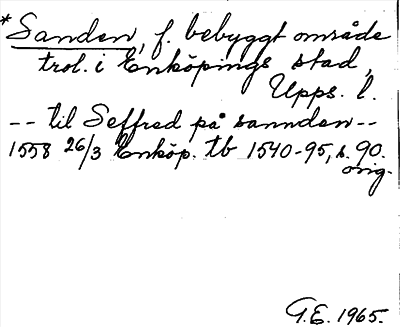 *Sanden, f. bebyggt område
trol. i Enköpings stad,
Upps. l.
-- til Seffred på sannden --
1558 26/3 Enköp. tb 1540-95, s. 90.
orig.
G.E. 1965.